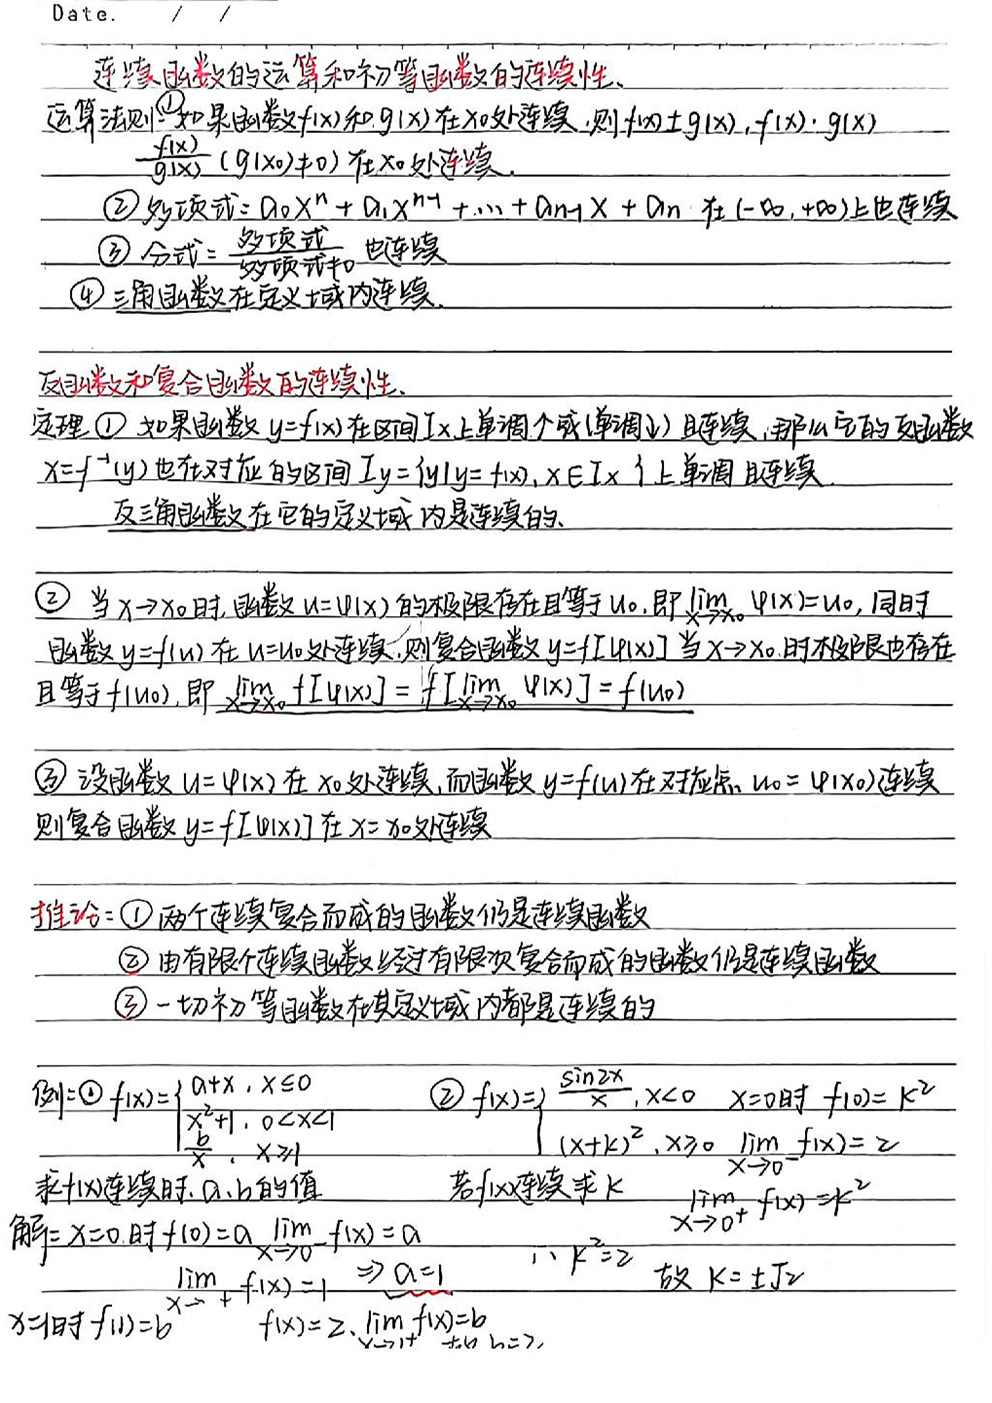 Date. / /
连续函数的运算和初等函数的连续性、
运算法则:①如果函数f(x)和g(x)在x0处连续,则f(x)±g(x),f(x)·g(x)
f(x)/g(x) (g(x0)≠0) 在x0处连续.
②多项式: a₀xⁿ + a₁xⁿ⁻¹ + … + aₙ₋₁x + aₙ 在(-∞,+∞)上也连续
③ 分式 = 多项式/多项式≠0 也连续
④ 三角函数在定义域内连续.
反函数和复合函数的连续性、
定理① 如果函数y=f(x)在区间Ix上单调↑或(单调↓)且连续,那么它的反函数
x=f⁻¹(y)也在对应的区间Iy={y|y=f(x),x∈Ix}上单调且连续.
反三角函数在它的定义域内是连续的、
② 当x→x0时,函数u=φ(x)的极限存在且等于u0,即lim x→x0 φ(x)=u0,同时
函数y=f(u)在u=u0处连续,则复合函数y=f[φ(x)]当x→x0时极限也存在
且等于f(u0),即 lim x→x0 f[φ(x)] = f[lim x→x0 φ(x)] = f(u0)
③ 设函数u=φ(x)在x0处连续,而函数y=f(u)在对应点u0=φ(x0)连续
则复合函数y=f[φ(x)]在x=x0处连续
推论:①两个连续复合而成的函数仍是连续函数
②由有限个连续函数经过有限次复合而成的函数仍是连续函数
③一切初等函数在其定义域内都是连续的
例:① f(x)={a+x, x≤0
x²+1, 0<x<1
b/x, x≥1
求f(x)连续时,a、b的值
解:x=0时f(0)=a lim x→0⁻ f(x)=a
lim x→ + f(x)=1 ⇒ a=1
x=1时f(1)=b f(x)=2、lim x→1⁺ f(x)=b
故b=2
② f(x)={sin2x/x, x<0 x=0时 f(0)=k²
(x+k)², x≥0 lim x→0⁻ f(x)=2
若f(x)连续求k lim x→0⁺ f(x)=k²
∴ k²=2 故 k=±√2